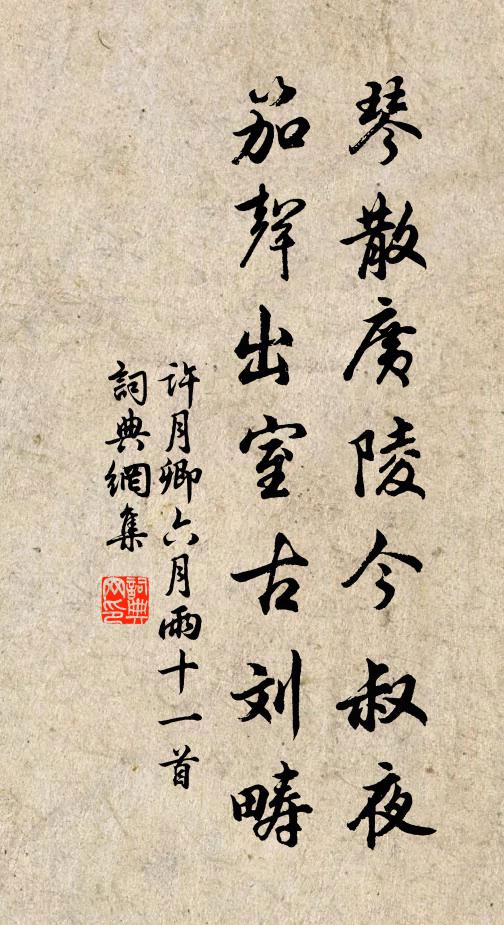 琴散廣陵今叔夜
笳聲出室古刘疇
許月卿六月雨十一首
詞典網集
詞典网印